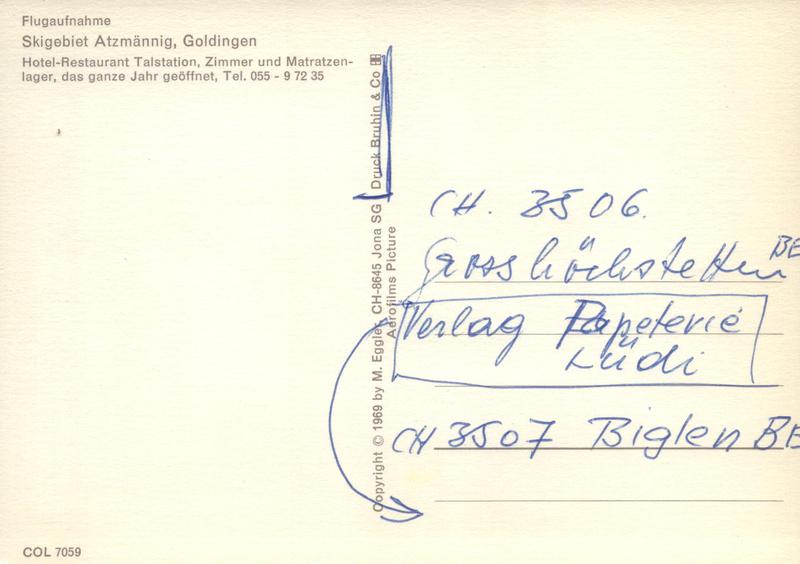 Flugaufnahme
Skigebiet Atzmännig, Goldingen
Hotel-Restaurant Talstation, Zimmer und Matratzen-
lager, das ganze Jahr geöffnet, Tel. 055 - 9 72 35
Copyright © 1969 by M. Eggler, CH-8645 Jona SG
Druck Bruhin & Co
Aerofilms Picture
CH. 3506.
Grosshöchstetten BE
Verlag Papeterie
Lüdi
CH 3507 Biglen BE
COL 7059